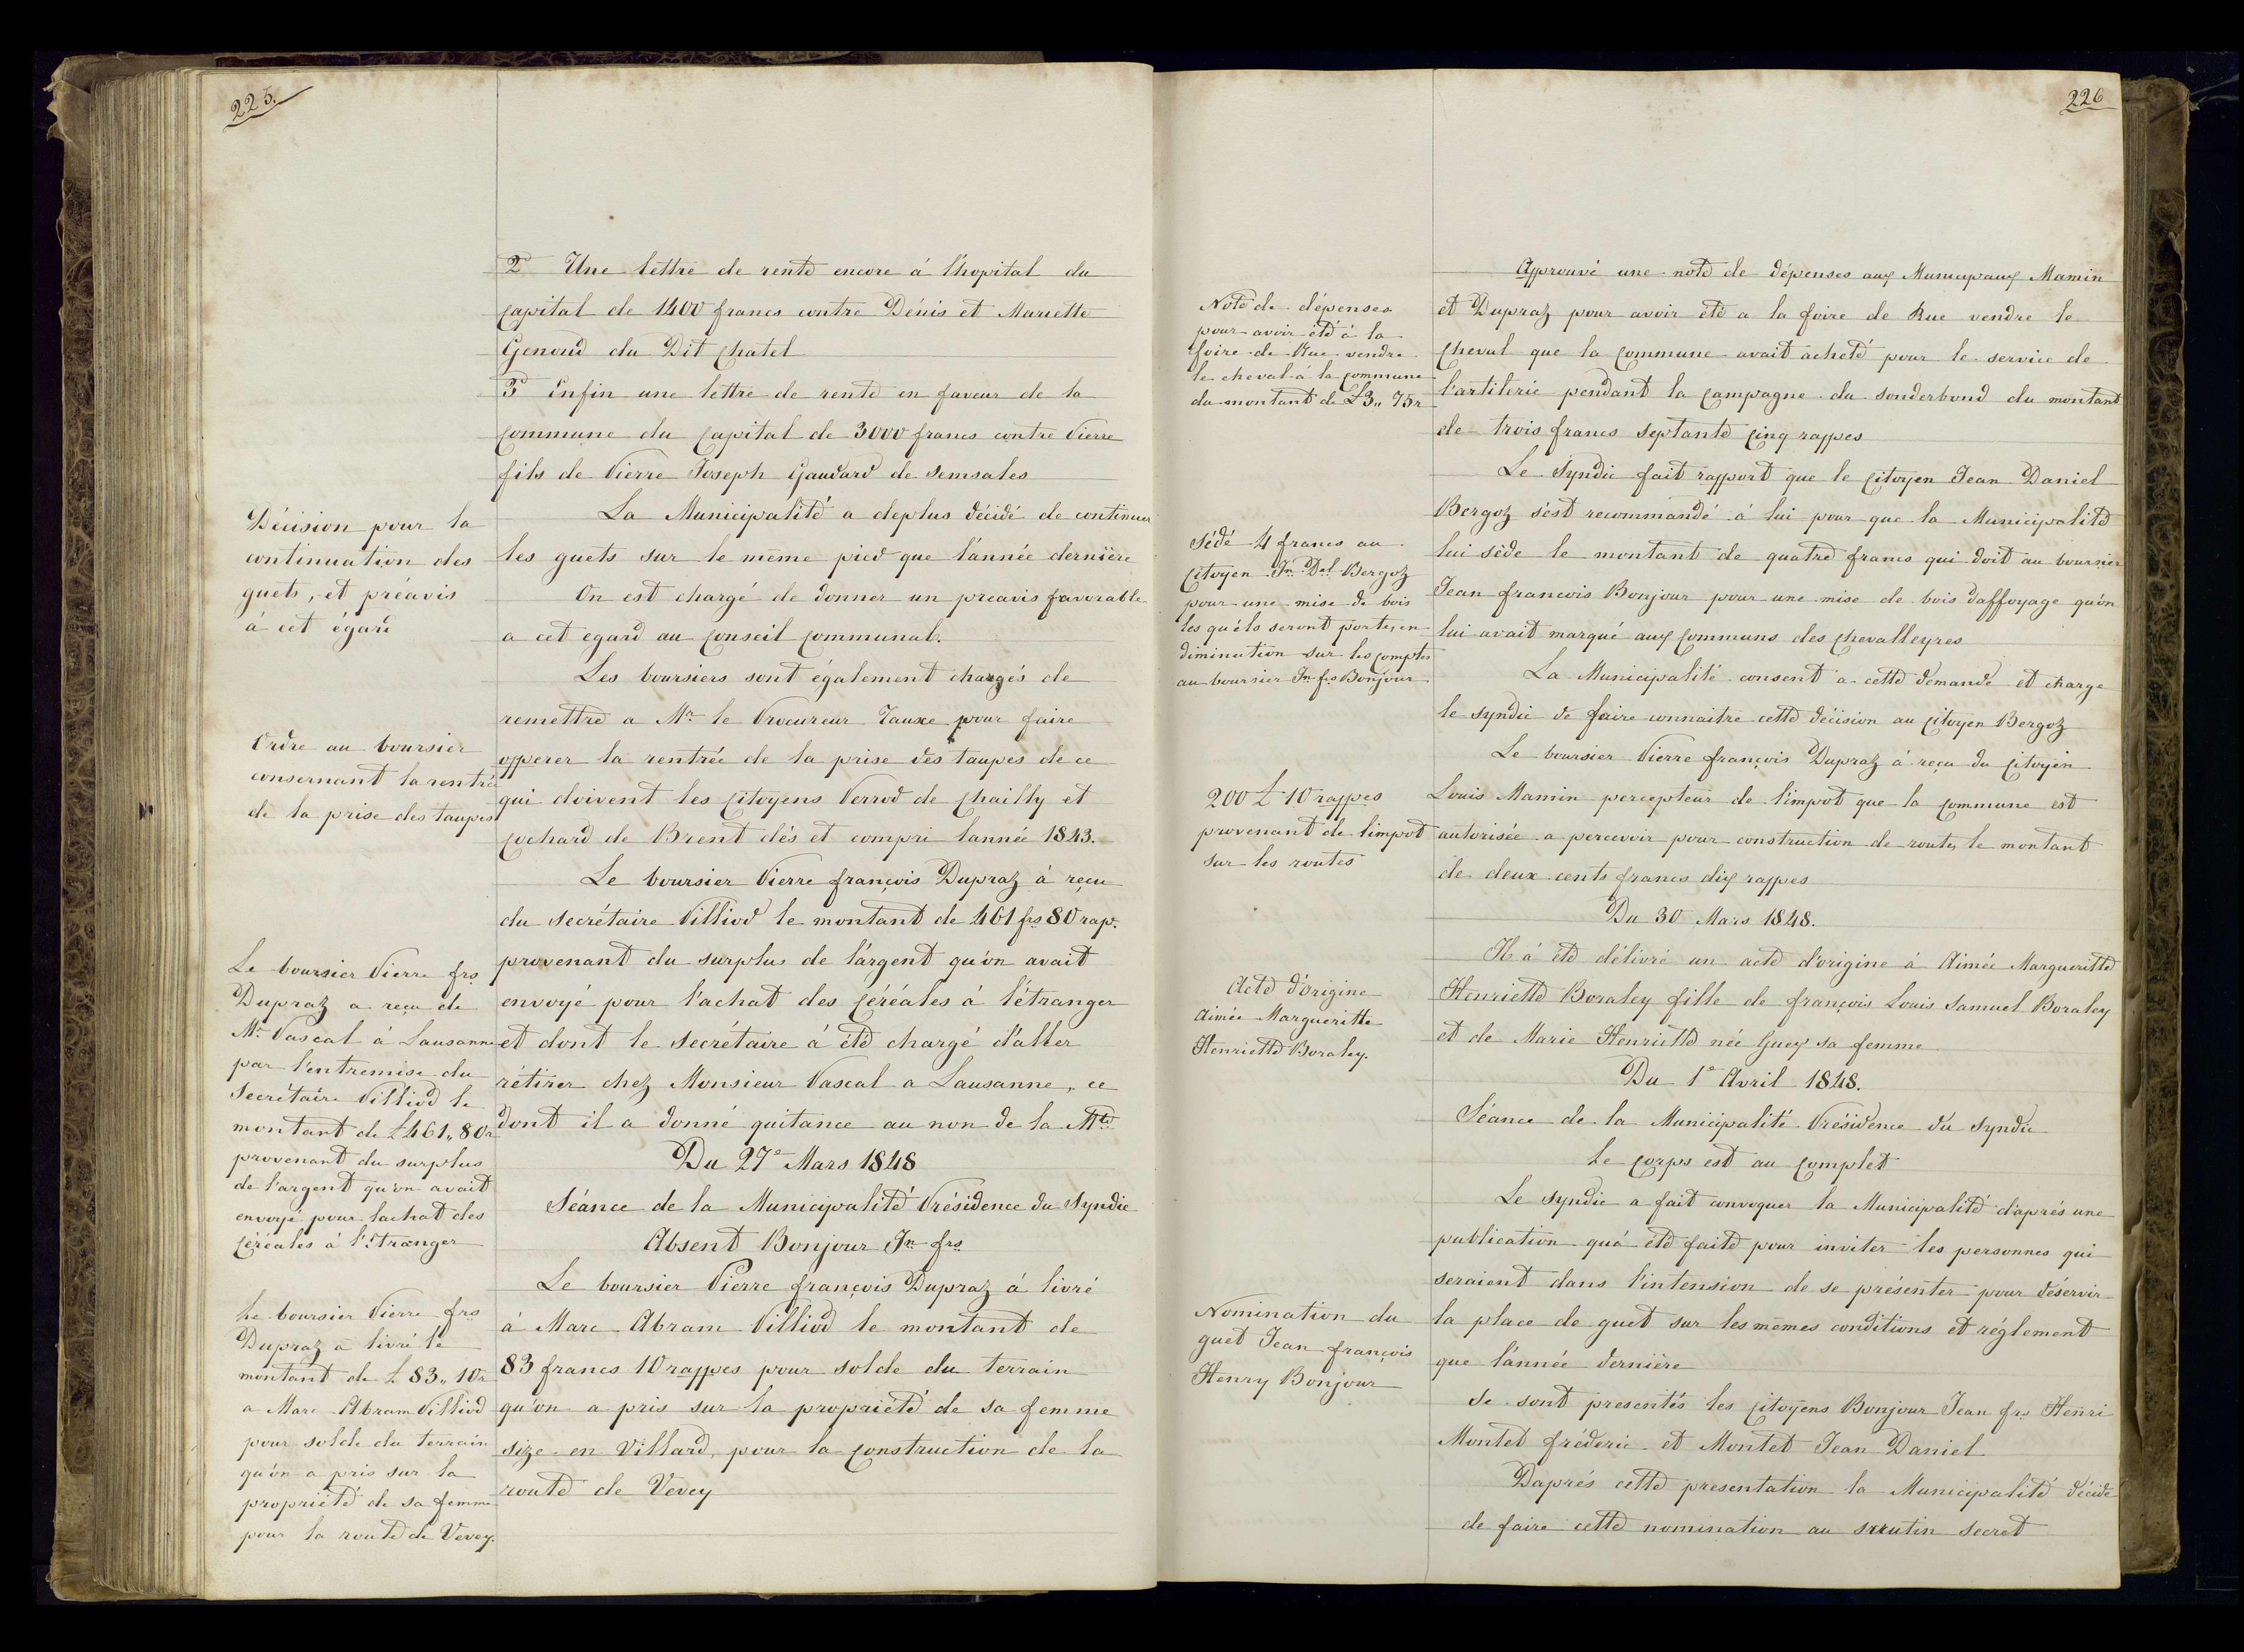 225.
2° Une lettre de rente encore á l'hopital du
capital de 1400 francs contre Dénis et Mariette
Genoud du Dit chatel
3° Enfin une lettre de rente en faveur de la
commune du capital de 3000 francs contre Pierre
fils de Pierre Joseph Gaudard de Semsales
Décision pour la
continuation des
guets, et préavis
à cet égard
La Municipalité a deplus décidé de continuer
les guets sur le même pied que l'année dernière
On est chargé de donner un preavis favorable
a cet egard au conseil communal.
Les boursiers sont également chargés de
remettre a Mr le Procureur Tauxe pour faire
Ordre au boursier
consernant la rentrée
de la prise des taupes
opperer la rentrée de la prise des taupes de ce
qui doivent les citoyens Perrod de chailly et
cochard de Brent dés et compri lannée 1843.
Le boursier Pierre françois Dupraz á reçu
du secrétaire Pilliod le montant de 461 frs 80 rap.
Le boursier Pierre frs
Dupraz a reçu de
Mr Pascal à Lausanne
par l'entremise du
Secrétaire Pilliod le
montant de L 461,, 80r
provenant du surplus
de l'argent qu'on avait
envoyé pour lachat des
céréales à l'Etranger
provenant du surplus de l'argent qu'on avait
envoyé pour l'achat des céréales á l'étranger
et dont le secrétaire á été chargé d'aller
rétirer chez Monsieur Pascal a Lausanne, ce
dont il a donné quitance au non de la Mté
Du 27e Mars 1848
Séance de la Municipalité Présidence du Syndic
Absent Bonjour Jn frs
Le boursier Pierre frs
Dupraz a livré le
montant de L 83,, 10r
a Marc Abram Pilliod
pour solde du terrain
qu'on a pris sur la
propriété de sa femme
pour la route de Vevey.
Le boursier Pierre françois Dupraz á livré
á Marc Abram Pilliod le montant de
83 francs 10 rappes pour solde du terrain
qu'on a pris sur la propriété de sa femme
size en Villard, pour la construction de la
route de Vevey
226
Note de dépenses
pour avoir été à la
foire de Rue vendre
le cheval à la commune
du montant de L 3,, 75r
Approuvé une note de dépenses aux Municipaux Mamin
et Dupraz pour avoir été a la foire de Rue vendre le
cheval que la commune avait acheté pour le service de
l'artilerie pendant la campagne du sonderbond du montant
de trois francs septante cinq rappes
Le Syndic fait rapport que le citoyen Jean Daniel
Sédé 4 francs au
citoyen Jn Del Bergoz
pour une mise de bois
les quéls seront portes en
diminution sur les comptes
au boursier Jn frs Bonjour
Bergoz s'est recommandé á lui pour que la Municipalité
lui sède le montant de quatre francs qui doit au boursier
Jean francois Bonjour pour une mise de bois daffoyage qu'on
lui avait marqué aux communs des chevalleyres
La Municipalité consent a cette demande et charge
le syndic de faire connaitre cette décision au citoyen Bergoz
200 L 10 rappes
provenant de limpot
sur les routes
Le boursier Pierre françois Dupraz á reçu du citoyen
Louis Mamin percepteur de l'impot que la commune est
autorisée a percevoir pour construction de routes le montant
de deux cents francs dix rappes
Du 30 Mars 1848.
Acte d'origine
Aimée Margueritte
Henriette Boraley.
Il á été délivré un acte d'origine á Aimée Margueritte
Henriette Boraley fille de françois Louis Samuel Boraley
et de Marie Henriette née Guex sa femme
Du 1e Avril 1848.
Séance de la Municipalité Présidence du Syndic
Le corps est au complet
Le syndic a fait convoquer la Municipalité d'aprés une
publication qu'á été faite pour inviter les personnes qui
seraient dans l'intension de se présenter pour déservir
Nomination du
guet Jean françois
Henry Bonjour
la place de guet sur les mêmes conditions et réglement
que l'année dernière
Se sont presentés les citoyens Bonjour Jean frs Henri
Montet fréderic et Montet Jean Daniel
Daprés cette presentation la Municipalité décide
de faire cette nomination au scrutin secret